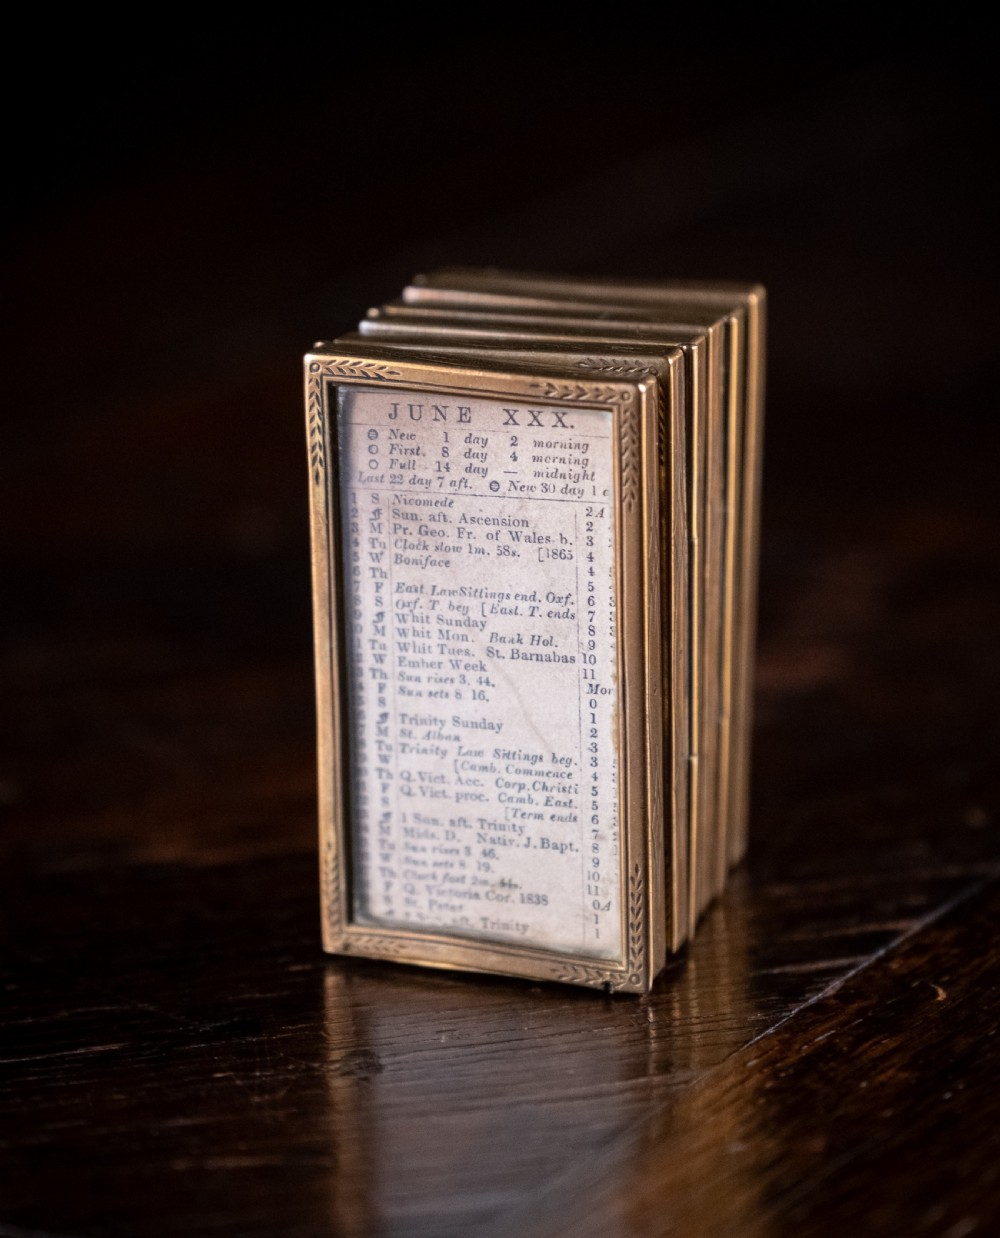 JUNE XXX.
New 1 day 2 morning
First. 8 day 4 morning
Full 14 day — midnight
Last 22 day 7 aft. New 30 day 1
1 S Nicomede 2A
2 Sun. aft. Ascension 2
3 M Pr. Geo. Fr. of Wales b. 3
4 Tu Clock slow 1m. 58s. [1865 4
5 W Boniface 4
6 Th 5
7 F East. Law Sittings end. Oxf. 6
8 S Oxf. T. beg [East. T. ends 7
9 Whit Sunday 8
0 M Whit Mon. Bank Hol. 9
1 Tu Whit Tues. St. Barnabas 10
2 W Ember Week 11
3 Th Sun rises 3. 44. Mor
4 F Sun sets 8 16. 0
S 1
Trinity Sunday 2
M St. Alban 3
Tu Trinity Law Sittings beg. 3
W [Camb. Commence 4
Th Q. Vict. Acc. Corp. Christi 5
F Q. Vict. proc. Camb. East. 5
S [Term ends 6
1 Sun. aft. Trinity 7
M Mids. D. Nativ. J. Bapt. 8
Tu Sun rises 3 46. 9
W Sun sets 8 19. 10
Th Clock fast 2m. 44s. 11
F Q. Victoria Cor. 1838 0A
S St. Peter 1
Sun. aft. Trinity 1